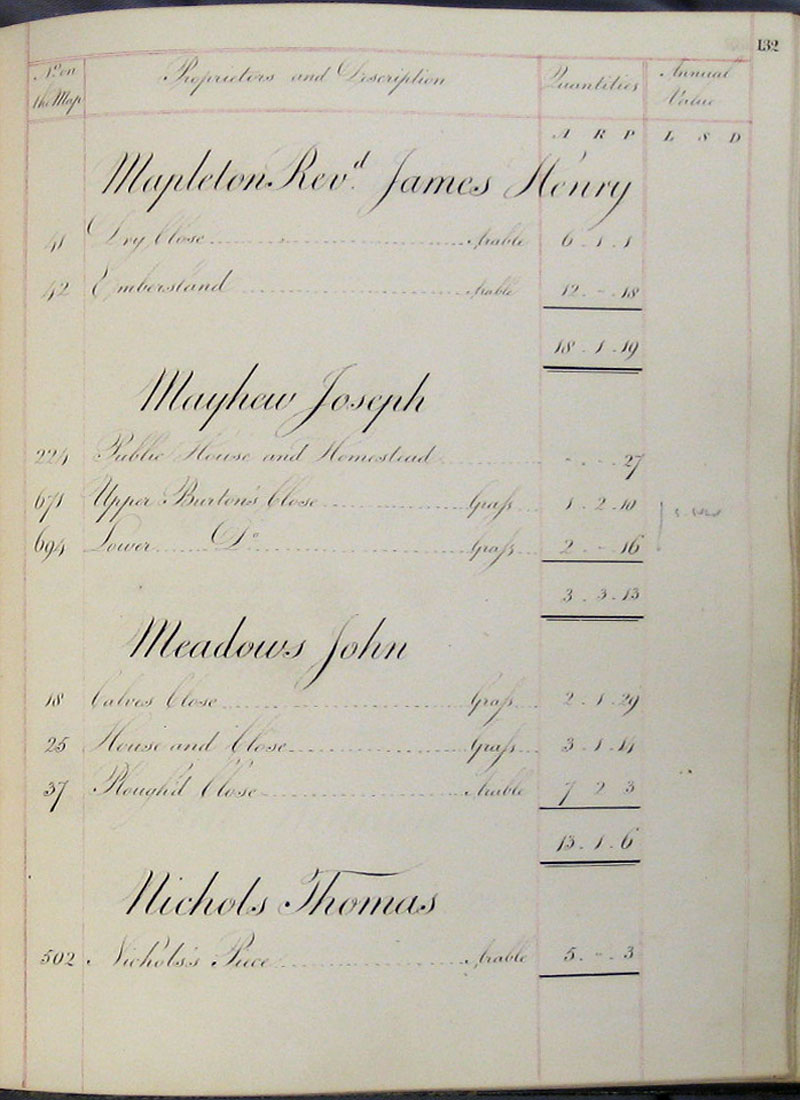 132
No. on the Map Proprietors and Description Quantities Annual Value
A R P L S D
Mapleton Revd. James Henry
41 Dry Close Arable 6 . 1 . 1
42 Embersland Arable 12 . - . 18
18 . 1 . 19
Mayhew Joseph
224 Public House and Homestead - . - . 27
671 Upper Burton's Close Grass 1 . 2 . 10
694 Lower Do Grass 2 . - . 16
3 . 3 . 13
Meadows John
18 Calves Close Grass 2 . 1 . 29
25 House and Close Grass 3 . 1 . 14
37 Plough'd Close Arable 7 2 3
13 . 1 . 6
Nichols Thomas
502 Nichols's Piece Arable 5 . - . 3